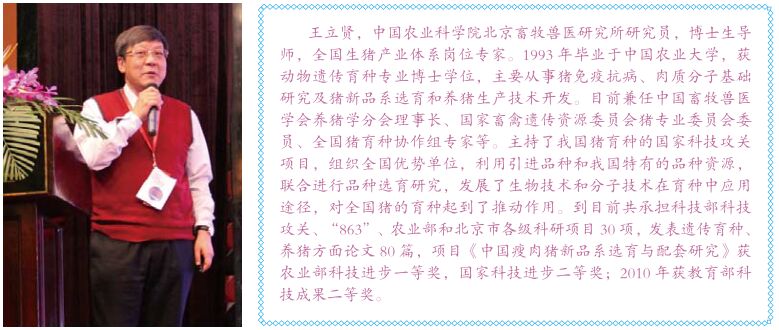 王立贤，中国农业科学院北京畜牧兽医研究所研究员，博士生导
师，全国生猪产业体系岗位专家。1993 年毕业于中国农业大学，获
动物遗传育种专业博士学位，主要从事猪免疫抗病、肉质分子基础
研究及猪新品系选育和养猪生产技术开发。目前兼任中国畜牧兽医
学会养猪学分会理事长、国家畜禽遗传资源委员会猪专业委员会委
员、全国猪育种协作组专家等。主持了我国猪育种的国家科技攻关
项目，组织全国优势单位，利用引进品种和我国特有的品种资源，
联合进行品种选育研究，发展了生物技术和分子技术在育种中应用
途径，对全国猪的育种起到了推动作用。到目前共承担科技部科技
攻关、“863”、农业部和北京市各级科研项目 30 项，发表遗传育种、
养猪方面论文 80 篇，项目《中国瘦肉猪新品系选育与配套研究》获
农业部科技进步一等奖，国家科技进步二等奖；2010 年获教育部科
技成果二等奖。